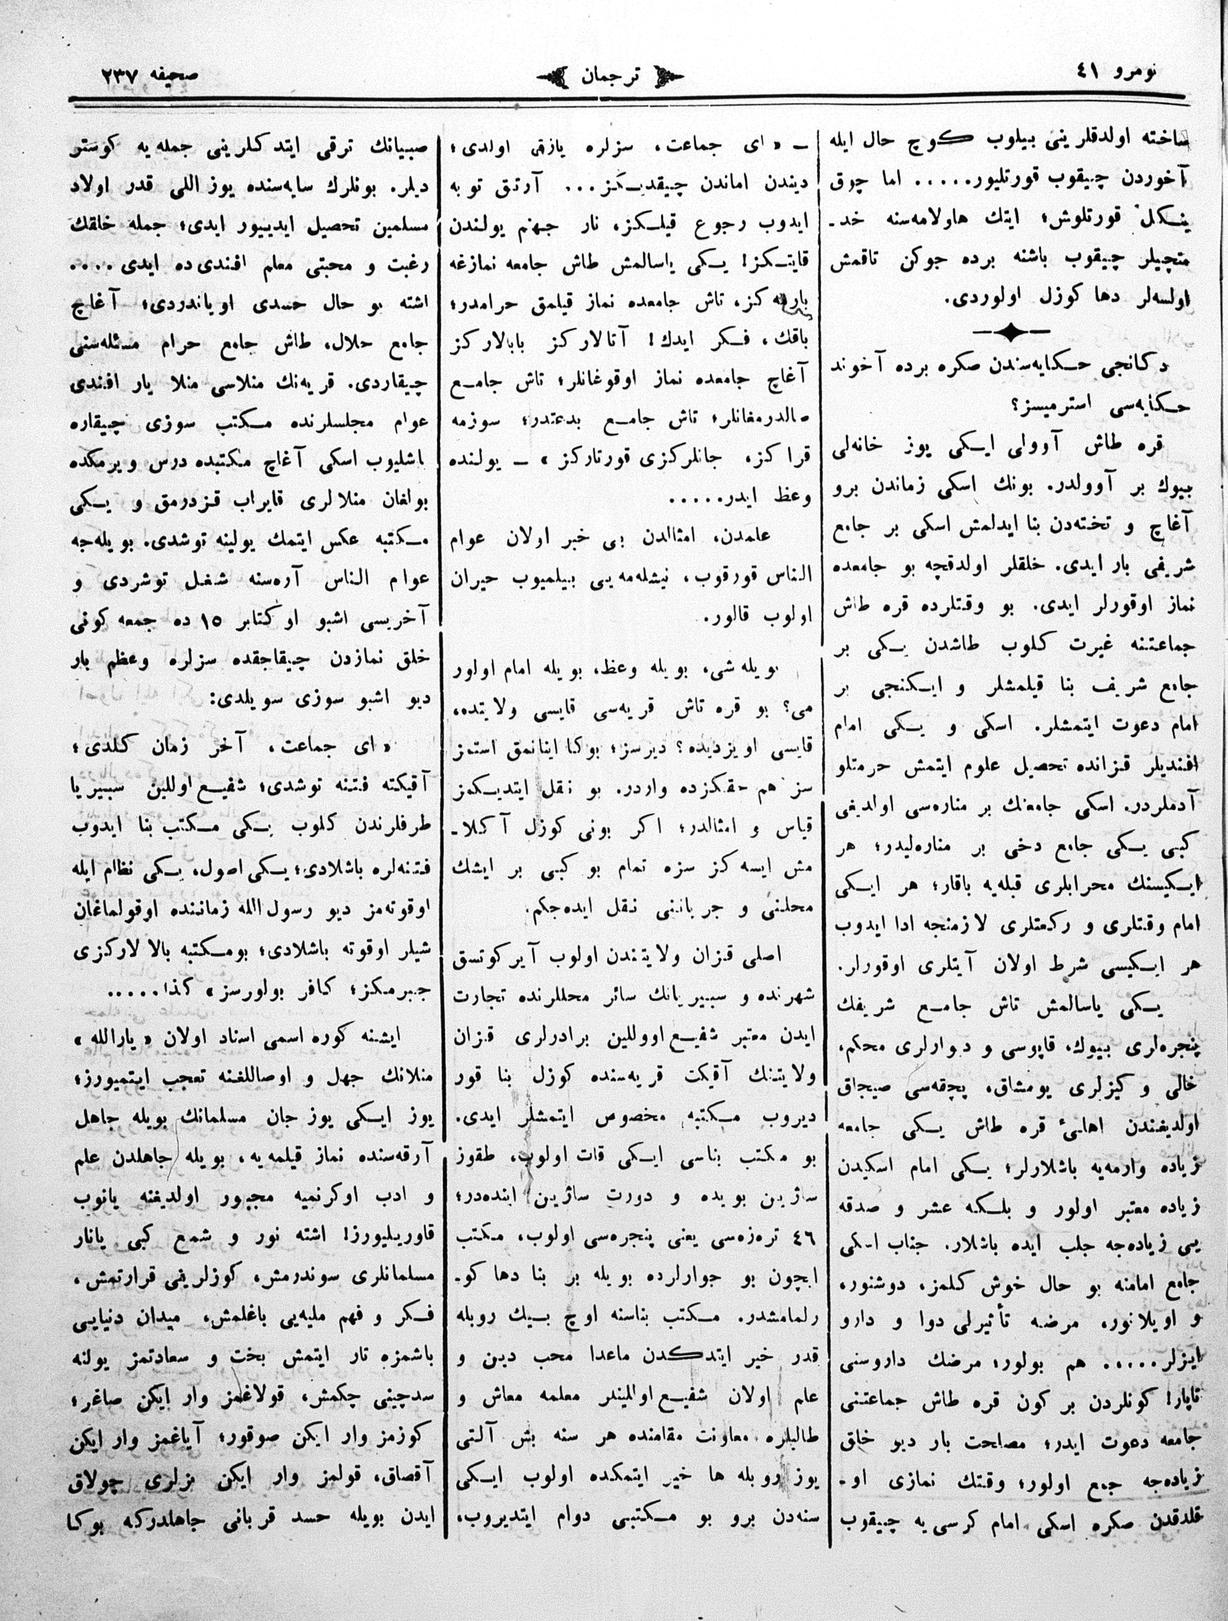 نومرو ٤١
ترجمان
صحيفه ٢٣٧
ساخته اولدقلرينى بيلوب كوچ حال ايله
آخوردن چيقوب قورتليور..... اما چوق
ينكل قورتلوش؛ ايتك هاولامه‌سنه خد-
متچيلر چيقوب باشنه برده جوكن تاقمش
اولسه‌لر دها كوزل اولوردى.
دكانجى حكايه‌سندن صكره برده آخوند
حكايه‌سى استرميسز؟
قره طاش آوولى ايكى يوز خانه‌لى
بيوك بر آوولدر. بونك اسكى زماندن برو
آغاچ و تخته‌دن بنا ايدلمش اسكى بر جامع
شريفى بار ايدى. خلقلر اولدقچه بو جامعده
نماز اوقورلر ايدى. بو وقتلرده قره طاش
جماعتنه غيرت كلوب طاشدن يكى بر
جامع شريف بنا قيلمشلر و ايكنجى بر
امام دعوت ايتمشلر. اسكى و يكى امام
افنديلر قزانده تحصيل علوم ايتمش حرمتلو
آدملردر. اسكى جامعنك بر مناره‌سى اولديغى
كبى يكى جامع دخى بر مناره‌ليدر؛ هر
ايكيسنك محرابلرى قبله‌يه باقار؛ هر ايكى
امام وقتلرى و ركعتلرى لازمنجه ادا ايدوب
هر ايكيسى شرط اولان آيتلرى اوقورلر.
يكى ياسالمش تاش جامع شريفك
پنجره‌لرى بيوك، قاپوسى و ديوارلرى محكم،
خالى و كيزلرى يومشاق، پچقه‌سى صيجاق
اولديغندن اهالئ قره طاش يكى جامعه
زياده وارمه‌يه باشلارلر؛ يكى امام اسكيدن
زياده معتبر اولور و بلكه عشر و صدقه
يى زياده‌جه جلب ايده باشلار. جناب اسكى
جامع امامنه بو حال خوش كلمز، دوشنور،
و اويلانور، مرضه تأثيرلى دوا و دارو
ايزلر..... هم بولور؛ مرضك داروسنى
تاپار! كونلردن بر كون قره طاش جماعتنى
جامعه دعوت ايدر؛ مصلحت بار ديو خلق
زياده‌جه جمع اولور؛ وقتك نمازى او-
قلدقدن صكره اسكى امام كرسى‌يه چيقوب
ــ «اى جماعت، سزلره يازق اولدى؛
ديندن اماندن چيقديكز... آرتق توبه
ايدوب رجوع قيلكز، نار جهنم يولندن
قايتكز! يكى ياسالمش طاش جامعه نمازغه
بارمه‌كز، تاش جامعده نماز قيلمق حرامدر؛
باقك، فكر ايدك! آتالاركز بابالاركز
آغاچ جامعده نماز اوقوغانلر؛ تاش جامع
صالدرمغانلر؛ تاش جامع بدعتدر؛ سوزمه
قراكز، جانلركزى قورتاركز» ــ يولنده
وعظ ايدر.....
علمدن، امثالدن بى خبر اولان عوام
الناس قورقوب، نيشله‌مه‌يى بيلميوب حيران
اولوب قالور.
بويله شى، بويله وعظ، بويله امام اولور
مى؟ بو قره تاش قريه‌سى قايسى ولايتده،
قايسى اويزديده؟ ديرسز؛ بوكا اينانمق استمز
سز هم حقكزده واردر. بو نقل ايتديكمز
قياس و امثالدر؛ اكر بونى كوزل آكلا-
مش ايسه‌كز سزه تمام بو كبى بر ايشك
محلنى و جرياننى نقل ايده‌جكم.
اصلى قزان ولايتندن اولوب آيركوتسق
شهرنده و سيبريانك سائر محللرنده تجارت
ايدن معتبر شفيع اووللين برادرلرى قزان
ولايتنك آقيكت قريه‌سنده كوزل بنا قور
ديروب مكتبه مخصوص ايتمشلر ايدى.
بو مكتب بناسى ايكى قات اولوب، طقوز
ساژين بويده و دورت ساژين اينده‌در؛
٤٦ تره‌زه‌سى يعنى پنجره‌سى اولوب، مكتب
ايچون بو جوارلرده بويله بر بنا دها كو-
رلمامشدر. مكتب بناسنه اوچ بيك روبله
قدر خير ايتدكدن ماعدا محب دين و
علم اولان شفيع اوللينلر معلمه معاش و
طالبلره معاونت مقامنده هر سنه بش آلتى
يوز روبله ها خير ايتمكده اولوب ايكى
سنه‌دن برو بو مكتبى دوام ايتديروب،
صبيانك ترقى ايتدكلرينى جمله‌يه كوستر
ديلر. بونلرك سايه‌سنده يوز اللى قدر اولاد
مسلمين تحصيل ايدييور ايدى؛ جمله خلقك
رغبت و محبتى معلم افندى‌ده ايدى....
اشته بو حال حسدى اوياندردى؛ آغاچ
جامع حلال، طاش جامع حرام مسئله‌سنى
چيقاردى. قريه‌نك منلاسى منلا يار افندى
عوام مجلسلرنده مكتب سوزى چيقاره
باشليوب اسكى آغاچ مكتبده درس ويرمكده
بولغان منلالرى قايراب قزدرمق و يكى
مكتبه عكس ايتمك يولينه توشدى. بويله‌جه
عوام الناس آره‌سنه شغل توشردى و
آخريسى اشبو اوكتابر ١٥ ده جمعه كونى
خلق نمازدن چيقاجقده سزلره وعظم بار
ديو اشبو سوزى سويلدى:
«اى جماعت، آخر زمان كلدى؛
آقيكته فتنه توشدى؛ شفيع اوللين سيبيريا
طرفلرندن كلوب يكى مكتب بنا ايدوب
فتنه‌لره باشلادى؛ يكى اصول، يكى نظام ايله
اوقوته‌مز ديو رسول الله زماننده اوقولماغان
شيلر اوقوته باشلادى؛ بو مكتبه بالالاركزى
جبرمكز؛ كافر بولورسز» كذا.....
ايشته كوره اسمى اسناد اولان «يارالله»
منلانك جهل و اوصاللغنه تعجب ايتميورز؛
يوز ايكى يوز جان مسلمانك بويله جاهل
آرقه‌سنده نماز قيلمه‌يه، بويله جاهلدن علم
و ادب اوكرنميه مجبور اولديغنه يانوب
قاوريليورز! اشته نور و شمع كبى يانار
مسلمانلرى سوندرمش، كوزلريفى قرارتمش،
فكر و فهم مليه‌يى باغلمش، ميدان دنيايى
باشمزه تار ايتمش بخت و سعادتمز يولنه
سدچينى چكمش، قولاغمز وار ايكن صاغر؛
كوزمز وار ايكن صوقور؛ آياغمز وار ايكن
آقصاق، قولمز وار ايكن بزلرى چولاق
ايدن بويله حسد قربانى جاهلدركه بوكا